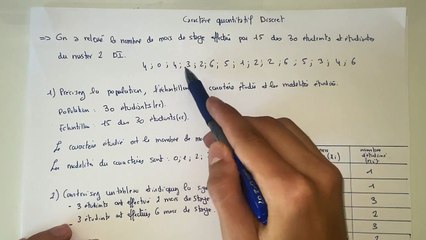 Caractère quantitatif Discret
=> On a relevé le nombre de mois de stage effectué par 15 des 30 étudiants et étudiantes
du master 2 DI.
4 ; 0 ; 4 ; 3 ; 2 ; 6 ; 5 ; 1 ; 2 ; 2 ; 6 ; 5 ; 3 ; 4 ; 6
1) Précisez la population, l'échantillon, caractère étudié et les modalités
Population : 30 étudiants(es).
Echantillon 15 des 30 étudiants(es).
Le caractère étudié est le nombre de mo
Les modalités du caractères sont : 0 ; 1 ; 2 ;
2) Construisez un tableau
- 3 étudiants ont effectué 2 mois de stage
- 3 étudiants ont effectués 6 mois de stage.
nombre d'étudiants
(ni)
1
1
3
2
3